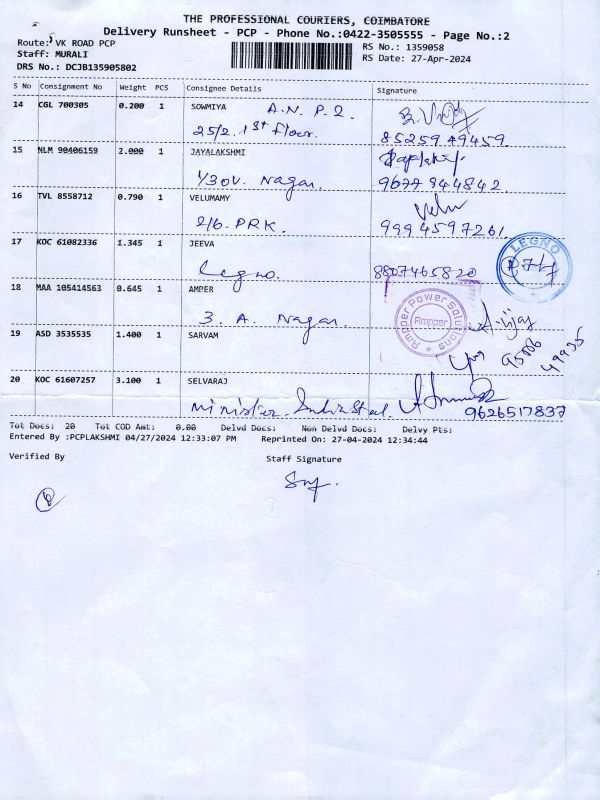 THE PROFESSIONAL COURIERS, COIMBATORE
Delivery Runsheet - PCP - Phone No.:0422-3505555 - Page No.:2
Route: VK ROAD PCP
Staff: MURALI
DRS No.: DCJB135905802
RS No.: 1359058
RS Date: 27-Apr-2024
S No Consignment No Weight PCS Consignee Details Signature
14 CGL 700305 0.200 1 SOWMIYA A.N.P.2
25/2. 1st floor. 85259 49459
15 NLM 90406159 2.000 1 JAYALAKSHMI
1/30V. Nagar. 9677 944842.
16 TVL 8558712 0.790 1 VELUMAMY Velu
2/6. PRK. 9994597261
17 KOC 61082336 1.345 1 JEEVA
Legno. 8807465820
LEGNO
18 MAA 105414563 0.645 1 AMPER
3. A. Nagar.
Ampper Power Solutions
Ampper
19 ASD 3535535 1.400 1 SARVAM
20 KOC 61607257 3.100 1 SELVARAJ
Minister. 9626517837
Tot Docs: 20 Tot COD Amt: 0.00 Delvd Docs: Non Delvd Docs: Delvy Pts:
Entered By :PCPLAKSHMI 04/27/2024 12:33:07 PM Reprinted On: 27-04-2024 12:34:44
Verified By Staff Signature